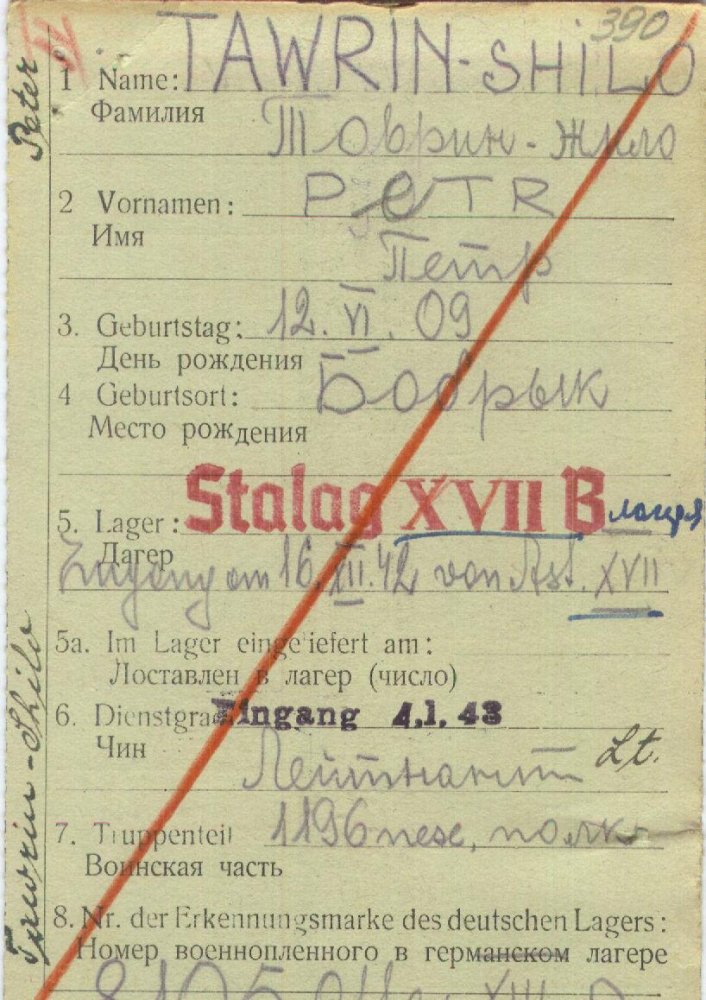 390
1 Name: TAWRIN-SHILO
Фамилия Товрин-Жило
2 Vornamen: PETR
Имя Петр
3. Geburtstag: 12. VI. 09
День рождения
4 Geburtsort: Бобрык
Место рождения
Stalag XVII B
5. Lager:
Лагер
Eingang am 16. XII. 42 von Ast. XVII
5a. Im Lager eingeliefert am:
Доставлен в лагер (число)
6. Dienstgrad Eingang 4.1.43
Чин Лейтенант Lt.
7. Truppenteil 1196 пех, полк
Воинская часть
8. Nr. der Erkennungsmarke des deutschen Lagers:
Номер военнопленного в германском лагере
Peter
Tawrin-Shilo